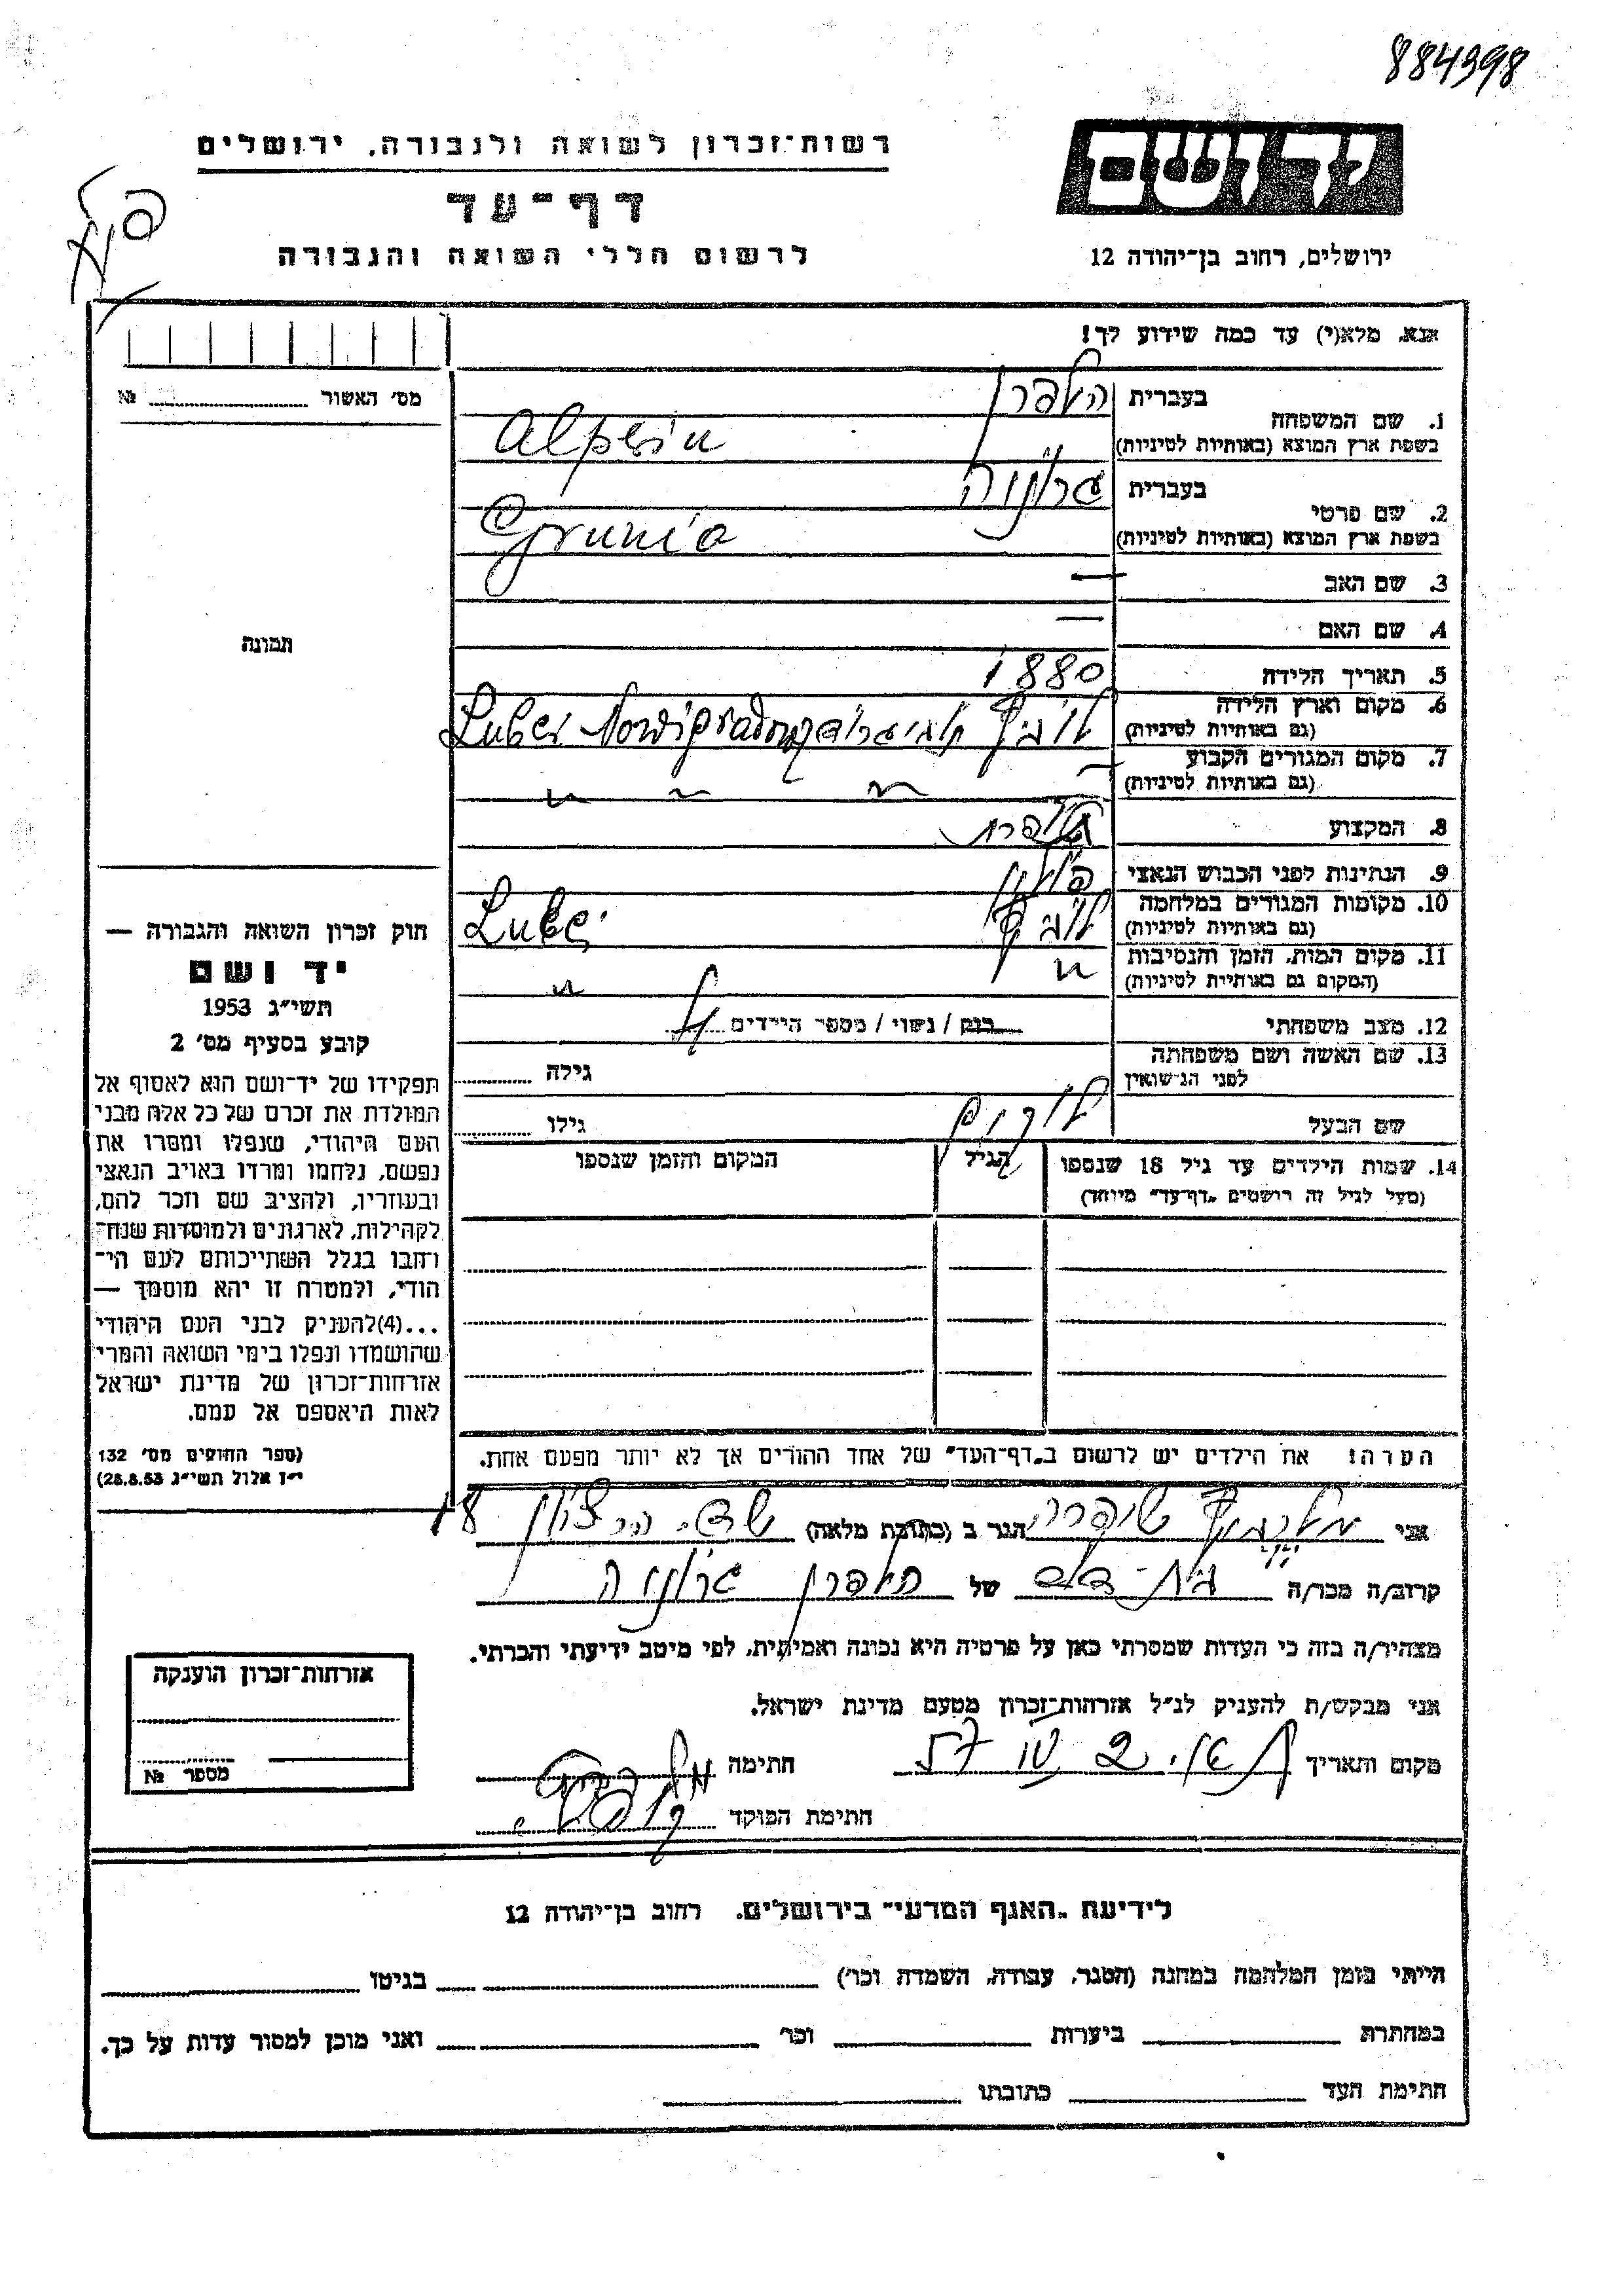 884398
רשות־זכרון לשואה ולגבורה, ירושלים
יד ושם
דף־עד
לרשום חללי השואה והגבורה
ירושלים, רחוב בן־יהודה 12
אנא, מלא(י) עד כמה שידוע לך!
מס׳ האשור № 
1. שם המשפחה בעברית הלפרן
בשפת ארץ המוצא (באותיות לטיניות) Alperin
2. שם פרטי בעברית גרוניה
בשפת ארץ המוצא (באותיות לטיניות) Grunia
3. שם האב —
4. שם האם —
תמונה
5. תאריך הלידה 1880
6. מקום וארץ הלידה
(גם באותיות לטיניות) לוביץ
7. מקום המגורים הקבוע
(גם באותיות לטיניות) " " "
8. המקצוע
9. הנתינות לפני הכבוש הנאצי פולין
10. מקומות המגורים במלחמה
(גם באותיות לטיניות) לוביץ
11. מקום המות, הזמן והנסיבות
(המקום גם באותיות לטיניות) " "
12. מצב משפחתי רווק / נשוי / מספר הילדים
13. שם האשה ושם משפחתה
לפני הנישואין גילה
שם הבעל גילו
14. שמות הילדים עד גיל 18 שנספו הגיל המקום והזמן שנספו
(מעל לגיל זה רושמים "דף־עד" מיוחד)
הערה: את הילדים יש לרשום ב"דף־העד" של אחד ההורים אך לא יותר מפעם אחת.
חוק זכרון השואה והגבורה —
יד ושם
תשי״ג 1953
קובע בסעיף מס׳ 2
תפקידו של יד־ושם הוא לאסוף אל
המולדת את זכרם של כל אלה מבני
העם היהודי, שנפלו ומסרו את
נפשם, נלחמו ומרדו באויב הנאצי
ובעוזריו, ולהציב שם וזכר להם,
לקהילות, לארגונים ולמוסדות שנח־
רבו בגלל השתייכותם לעם הי־
הודי, ולמטרה זו יהא מוסמך —
...(4)להעניק לבני העם היהודי
שהושמדו ונפלו בימי השואה והמרי
אזרחות־זכרון של מדינת ישראל
לאות היאספם אל עמם.
(ספר החוקים מס׳ 132
י״ז אלול תשי״ג 28.8.53)
אני שיפרה הגר ב (כתובת מלאה) שד. הר ציון 18
קרוב/ה מכר/ה בת־דוד של הלפרן גרוניה
מצהיר/ה בזה כי העדות שמסרתי כאן על פרטיה היא נכונה ואמיתית, לפי מיטב ידיעתי והכרתי.
אני מבקש/ת להעניק לנ״ל אזרחות־זכרון מטעם מדינת ישראל.
מקום ותאריך חתימה
חתימת הפוקד
אזרחות־זכרון הוענקה
מספר №
לידיעת "האגף המדעי" בירושלים, רחוב בן־יהודה 12
הייתי בזמן המלחמה במחנה (הסגר, עבודה, השמדה וכו׳) בגיטו
במחתרת ביערות וכו׳ ואני מוכן למסור עדות על כך.
חתימת העד כתובתו